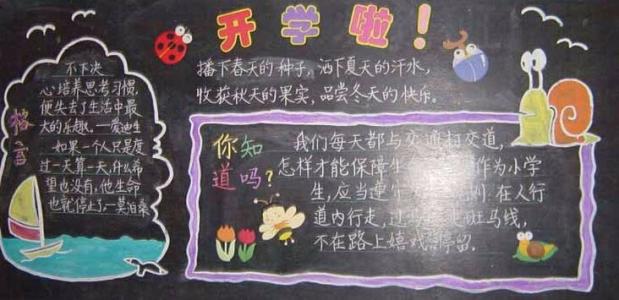 开学啦!
播下春天的种子,洒下夏天的汗水,
收获秋天的果实,品尝冬天的快乐。
格言
不下决
心培养思考习惯,
便失去了生活中最
大的乐趣。—爱迪生
如果一个人只是度
过一天算一天,什么希
望也没有,他生命
也就停止了。—莫泊桑
你知
道吗?
我们每天都与交通打交道,
怎样才能保障生 作为小学
生,应当遵 则.在人行
道内行走,过 斑马线,
不在路上嬉戏 停留.